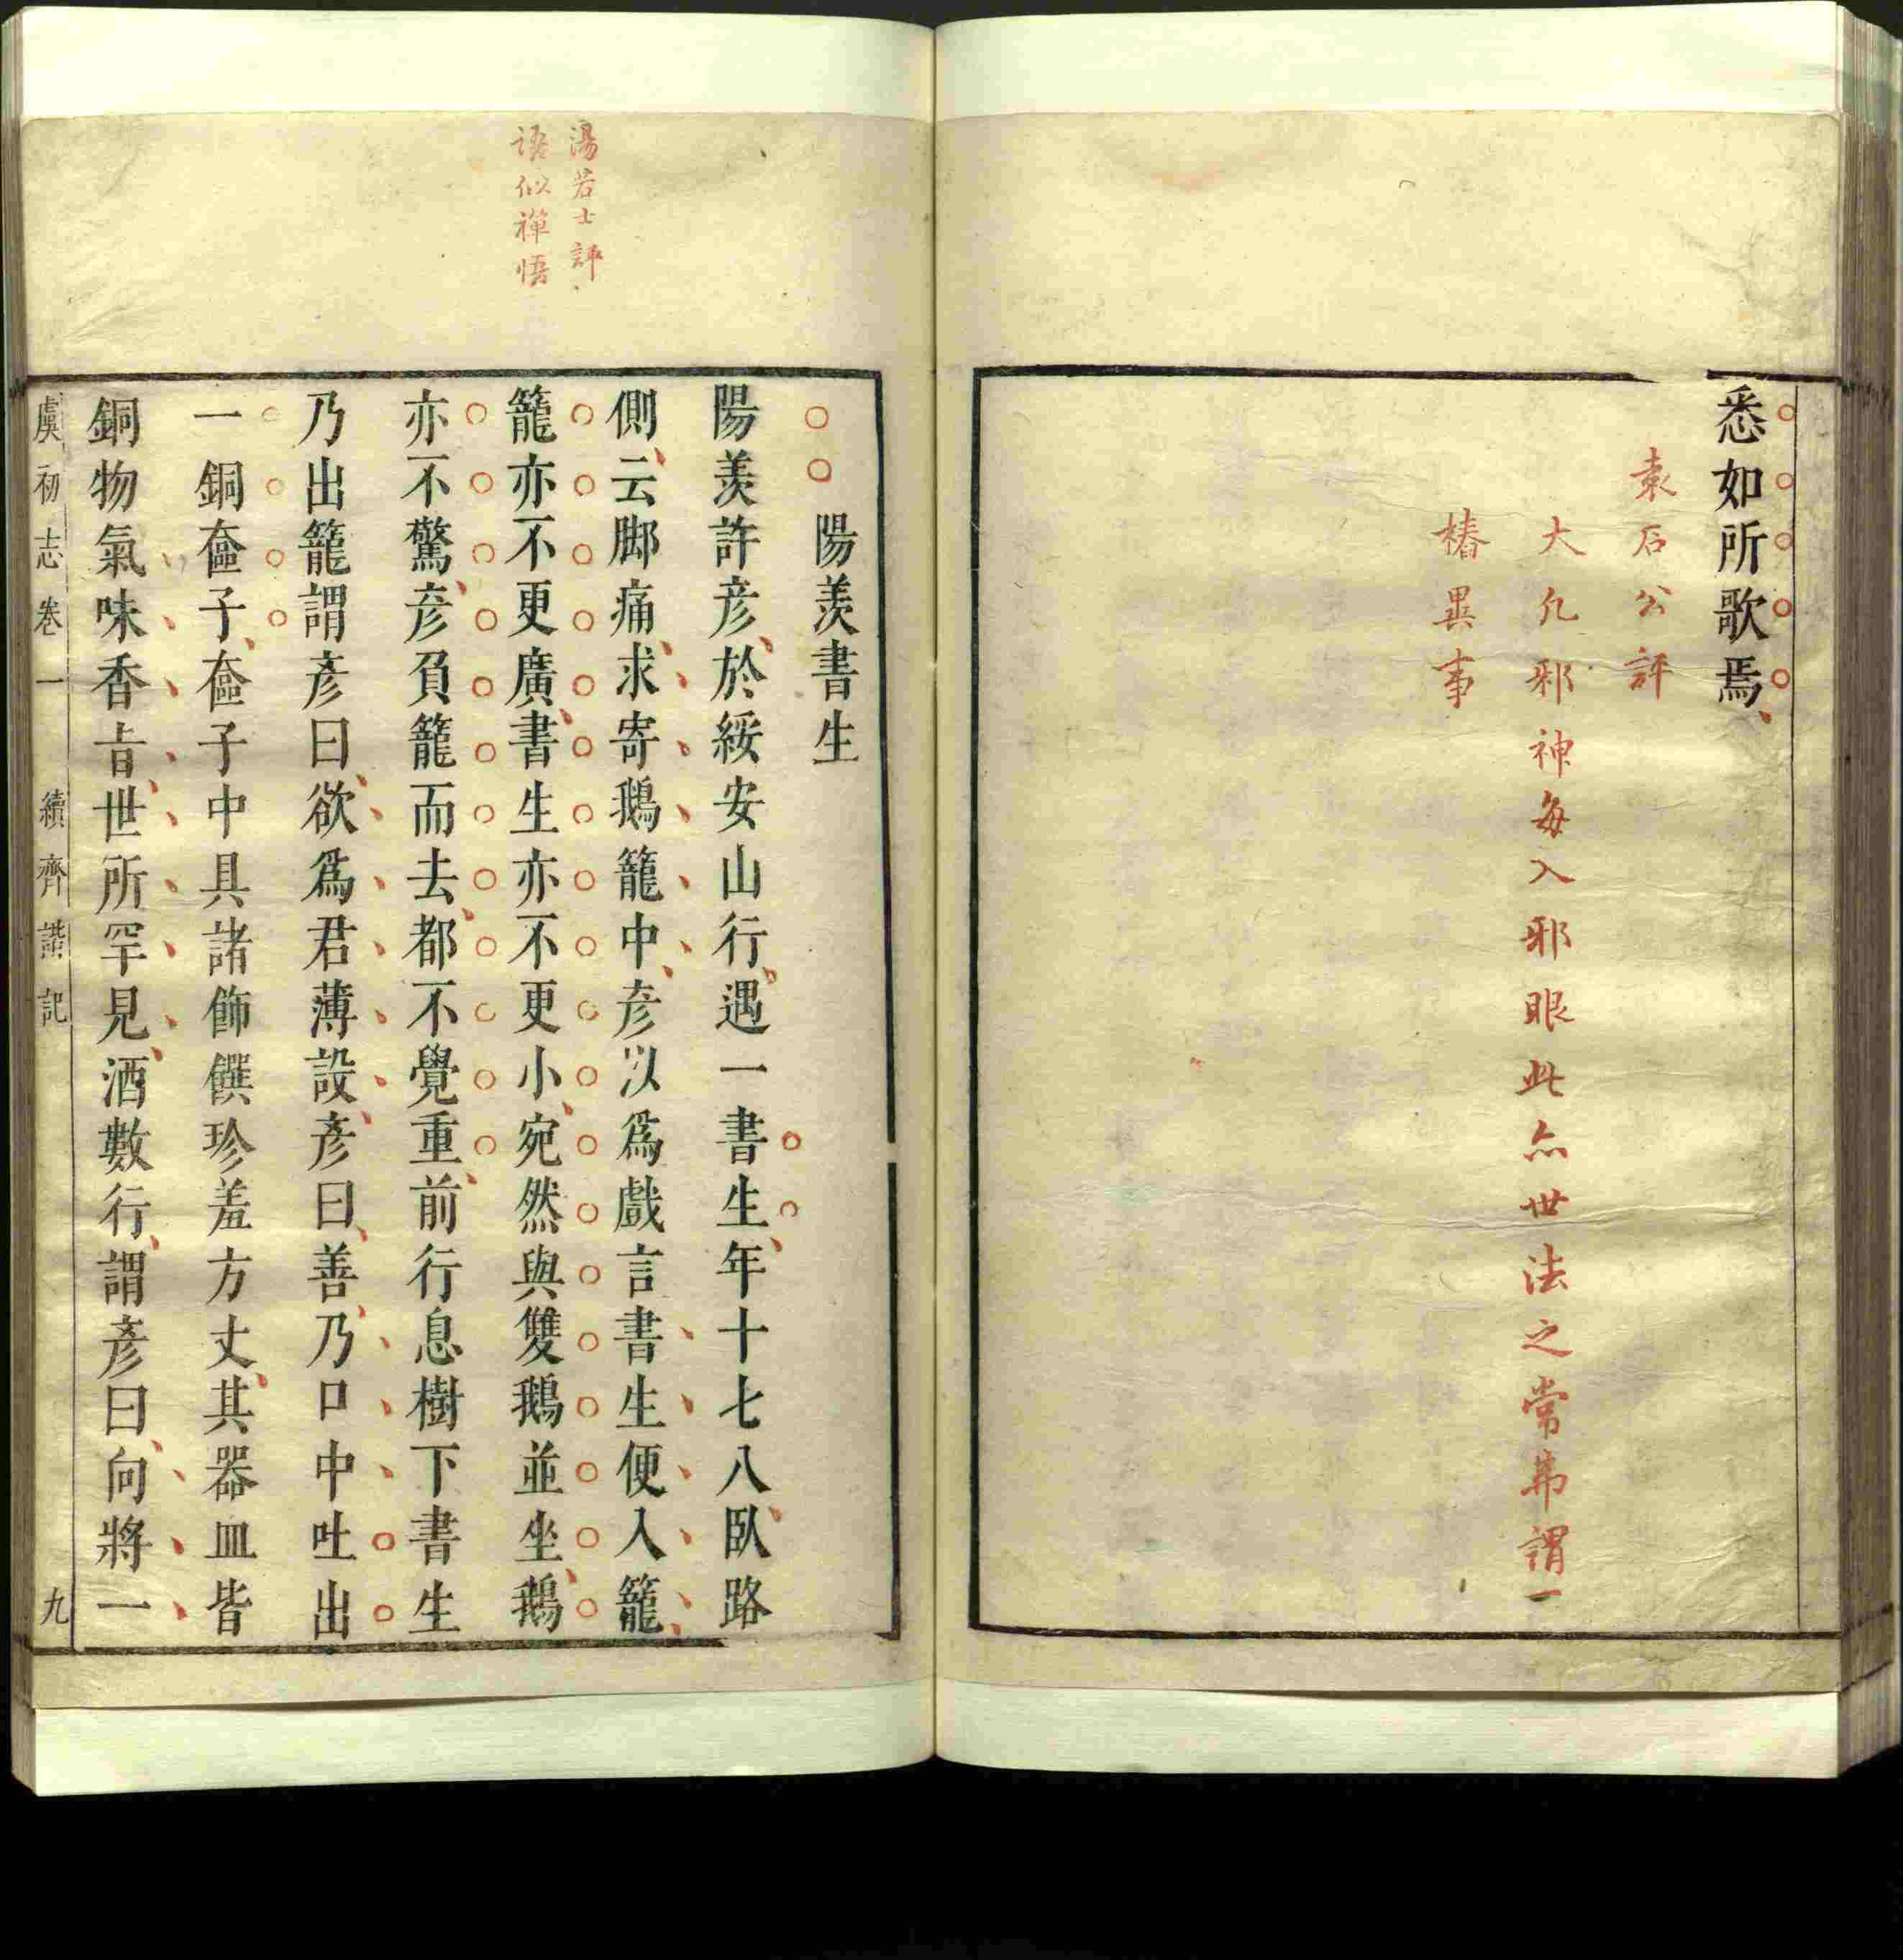 悉如所歌焉
袁石公評
大凢邪神每入邪眼此亦世法之常弗謂一
樁異事
湯若士評
語似禪悟
陽羨書生
陽羨許彦於綏安山行遇一書生年十七八臥路
側云脚痛求寄鵝籠中彦以爲戲言書生便入籠
籠亦不更廣書生亦不更小宛然與雙鵝並坐鵝
亦不驚彦負籠而去都不覺重前行息樹下書生
乃出籠謂彦曰欲爲君薄設彦曰善乃口中吐出
一銅奩子奩子中具諸飾饌珍羞方丈其器皿皆
銅物氣味香旨世所罕見酒數行謂彦曰向將一
虞初志卷一 續齊諧記 九